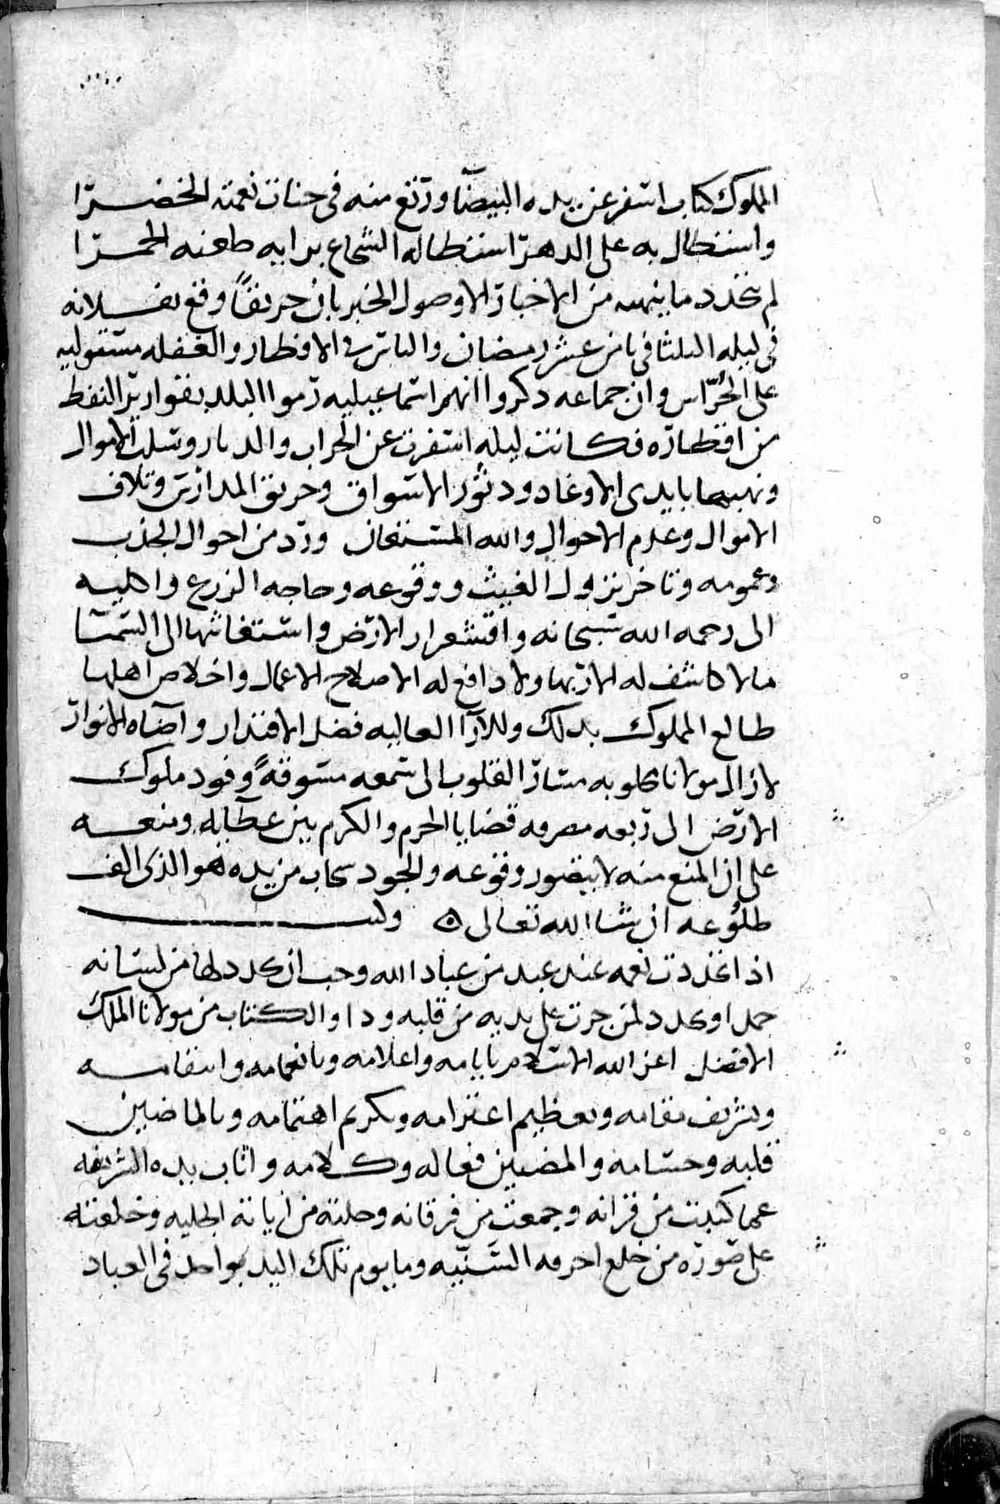 المملوك كتاب اسفر عن يده البيضا ورتع منه في جنات نعمته الخضرا
واستطال به على الدهر استطاله الشجاع برايه طعنه الحمرا
لم يتجدد ما ينهيه من الاخبار الا وصول الخبر بان حريقا وقع
في ليله الثلثا في ثامن عشر رمضان والناس في الافطار والغفله مستوليه
على الحراس وان جماعه ذكروا انهم اسماعيليه رموا البلد بقوارير النفط
من اقطاره فكانت ليله اسفرت عن الخراب والدمار وسلب الاموال
ونهبها بايدي الاوغاد ودثور الاسواق وحريق المدارس وتلاف
الاموال وعدم الاحوال والله المستعان ورد من احوال الجدب
وعمومه وتاخر نزول الغيث ووقوعه وحاجه الزرع واهليه
الى رحمه الله سبحانه واقشعرار الارض واستغاثتها الى السما
ما لا كاشف له الا ربها ولا دافع له الا صلاح الاعمال واخلاص اهلها
طالع المملوك بذلك وللآرا العاليه فضل الاقتدار واضاه الانوار
لا زال مولانا مسار القلوب الى سمعه مسوقة وفود ملوك
الارض الى ربعه مصرفه قضايا الحرم والكرم بين عطايه ومنعه
على ان المنع منه لا يتصور وقوعه والجود سحاب من يده هو الذي الف
طلوعه ان شا الله تعالى ه وله
اذا تجددت نعمه عند عبد من عباد الله وجب ان يجدد لها من لسانه
حمدا ويجدد لمن جرت على يديه من قلبه ودا والكتاب من مولانا الملك
الافضل اعز الله الاسلام بايامه واعلامه وبانعامه وانتقامه
وتشريف مقامه وتعظيم اعتزامه وتكريم اهتمامه وبالماضيين
قلبه وحسامه والمضيين فعاله وكلامه واثاب يده الشريفه
عما كتبت من قرانه وجمعت من فرقانه وجلته من اياته الجليه وخلعته
على صوره من خلع احرفه السنيه وما يوم تلك اليد بواحد في العباد